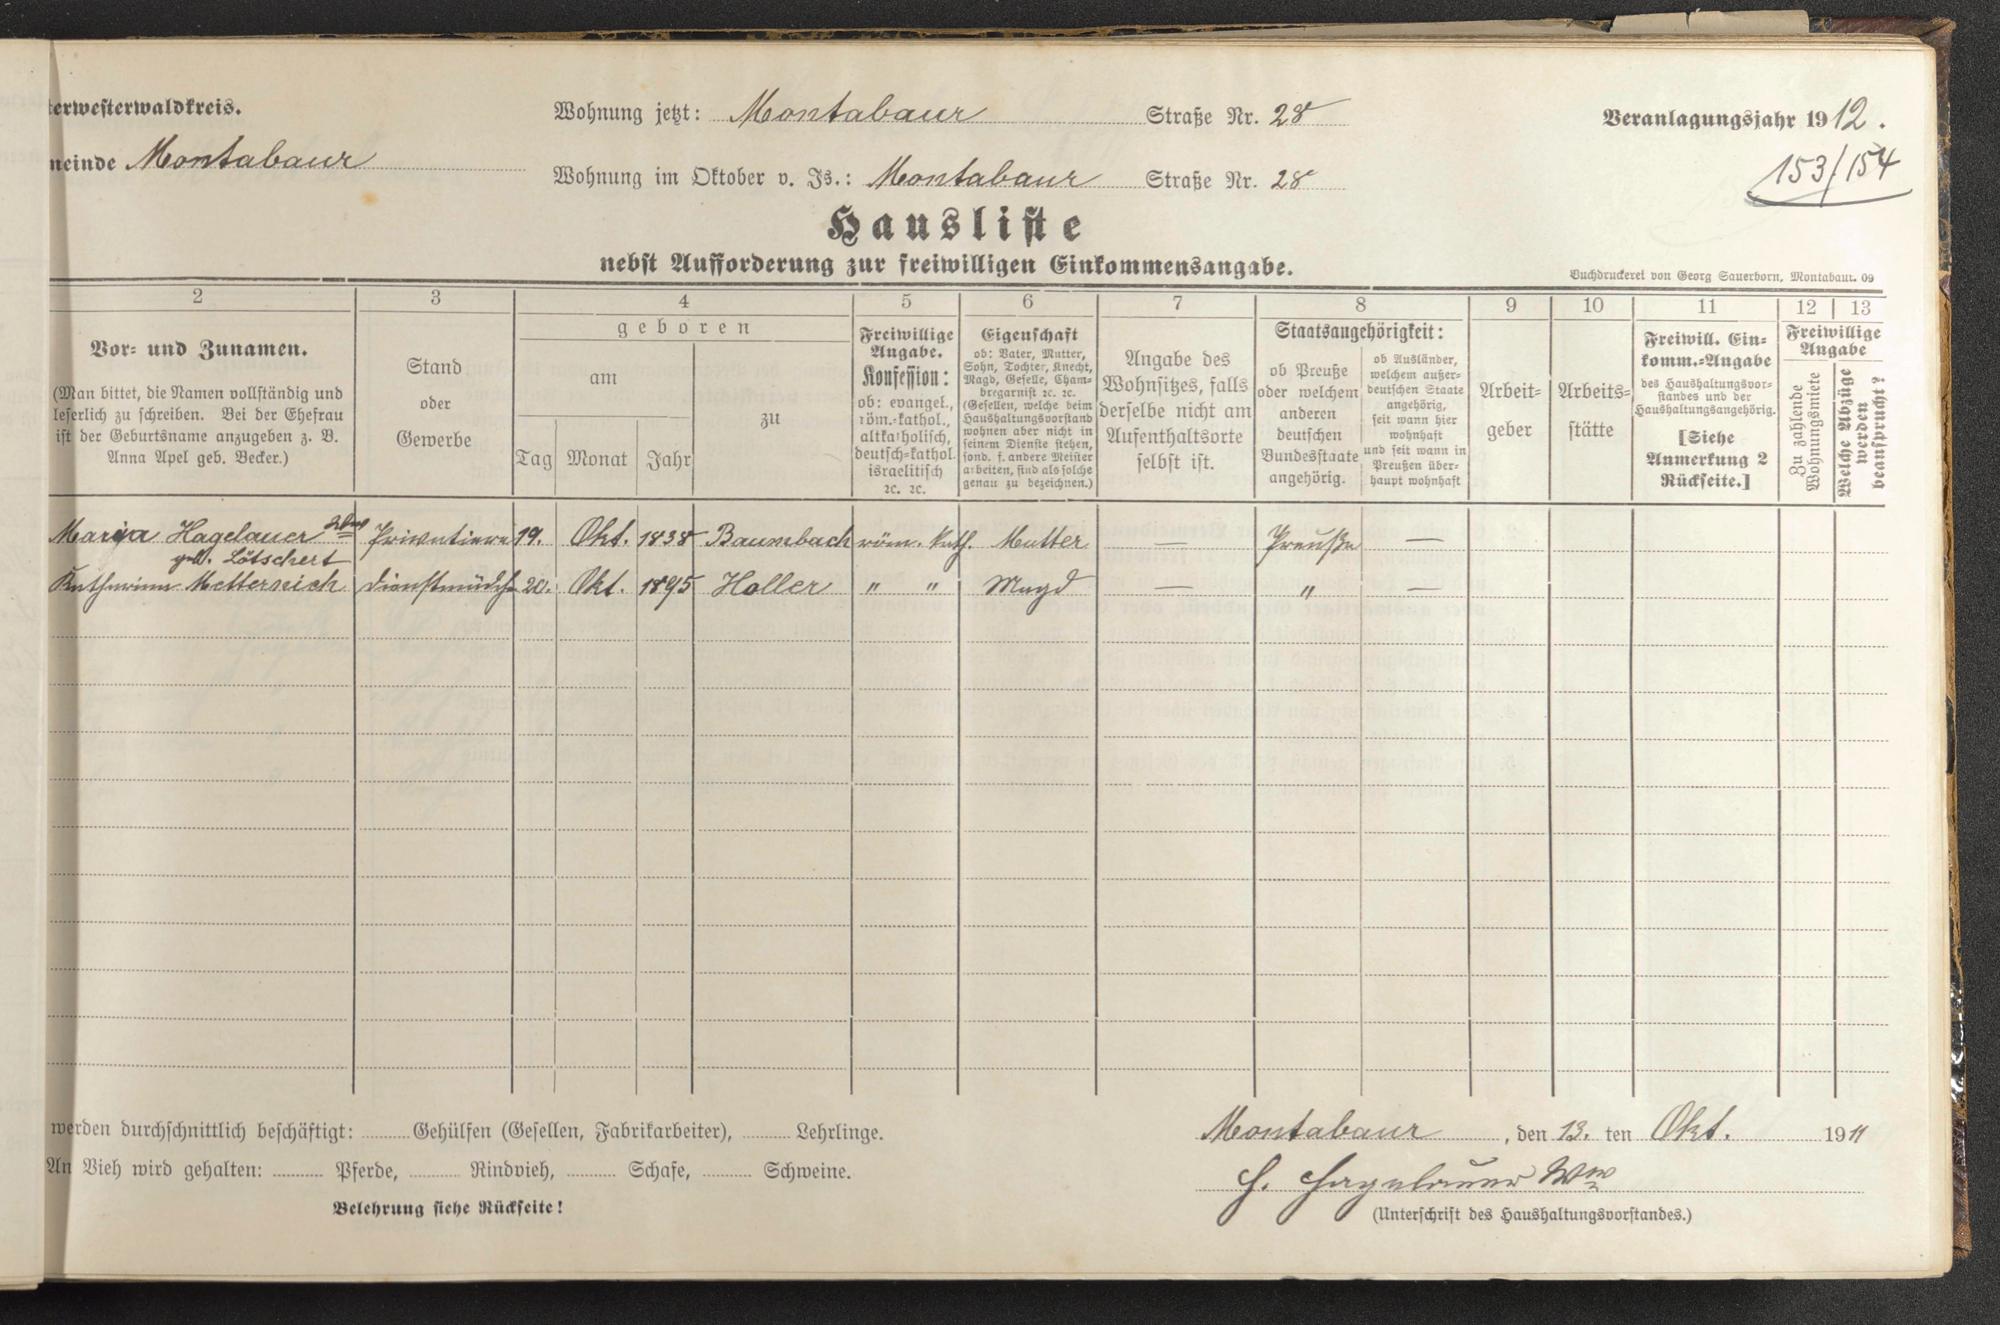 terwesterwaldkreis.
meinde Montabaur
Wohnung jetzt: Montabaur Straße Nr. 28
Wohnung im Oktober v. Js.: Montabaur Straße Nr. 28
Veranlagungsjahr 1912.
153/154
Hausliste
nebst Aufforderung zur freiwilligen Einkommensangabe.
Buchdruckerei von Georg Sauerborn, Montabaur. 09
2 3 4 5 6 7 8 9 10 11 12 13
Vor- und Zunamen.
(Man bittet, die Namen vollständig und
leserlich zu schreiben. Bei der Ehefrau
ist der Geburtsname anzugeben z. B.
Anna Apel geb. Becker.)
Stand
oder
Gewerbe
geboren
am
Tag Monat Jahr
zu
Freiwillige
Angabe.
Konfession:
ob: evangel.,
röm.-kathol.,
altkatholisch,
deutsch-kathol.
israelitisch
ꝛc. ꝛc.
Eigenschaft
ob: Vater, Mutter,
Sohn, Tochter, Knecht,
Magd, Geselle, Cham-
bregarnist ꝛc. ꝛc.
(Gesellen, welche beim
Haushaltungsvorstand
wohnen aber nicht in
seinem Dienste stehen,
sond. f. andere Meister
arbeiten, sind als solche
genau zu bezeichnen.)
Angabe des
Wohnsitzes, falls
derselbe nicht am
Aufenthaltsorte
selbst ist.
Staatsangehörigkeit:
ob Preuße
oder welchem
anderen
deutschen
Bundesstaate
angehörig.
ob Ausländer,
welchem außer-
deutschen Staate
angehörig,
seit wann hier
wohnhaft
und seit wann in
Preußen über-
haupt wohnhaft
Arbeit-
geber
Arbeits-
stätte
Freiwill. Ein-
komm.-Angabe
des Haushaltungsvor-
standes und der
Haushaltungsangehörig.
[Siehe
Anmerkung 2
Rückseite.]
Freiwillige
Angabe
Zu zahlende
Wohnungsmiete
Welche Abzüge
werden
beansprucht?
Maria Hagelauer Wwe Privatiere 19. Okt. 1838 Baumbach röm. kath. Mutter — Preuße —
geb. Lötschert
Katharina Metternich Dienstmädch 20. Okt. 1895 Holler " " Magd — " —
werden durchschnittlich beschäftigt: ........ Gehülfen (Gesellen, Fabrikarbeiter), ........ Lehrlinge.
An Vieh wird gehalten: ........ Pferde, ........ Rindvieh, ........ Schafe, ........ Schweine.
Belehrung siehe Rückseite!
Montabaur, den 13. ten Okt. 1911
Wwe
(Unterschrift des Haushaltungsvorstandes.)